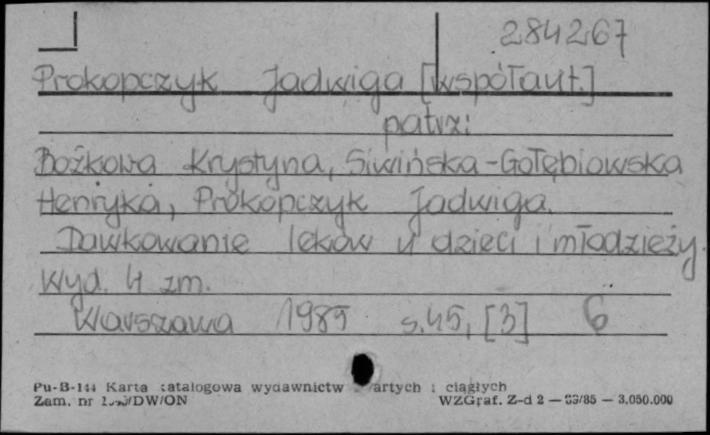 284267
Prokopczyk Jadwiga [współaut.]
patrz:
Bożkowa Krystyna, Siwińska-Gołębiowska
Henryka, Prokopczyk Jadwiga.
Dawkowanie leków u dzieci i młodzieży.
Wyd. 4 zm.
Warszawa 1985 s. 45, [3] 6
Pu-B-144 Karta katalogowa wydawnictw zwartych i ciągłych
Zam. nr /DW/ON WZGraf. Z-d 2 — /85 — 3.050.000